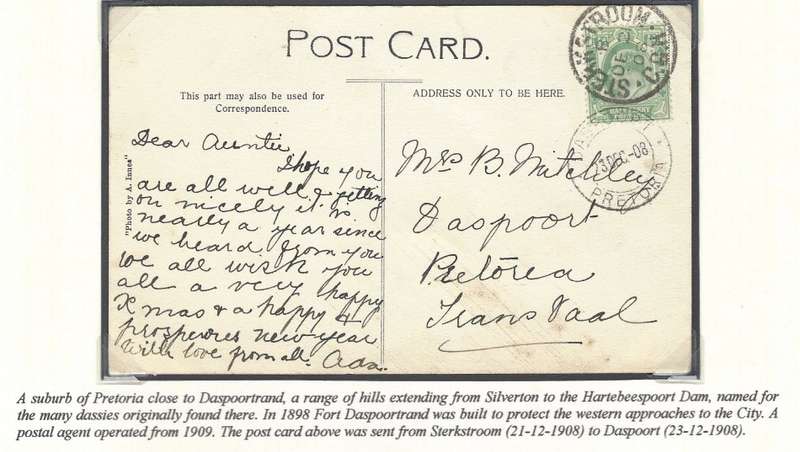 POST CARD.
This part may also be used for
Correspondence.
ADDRESS ONLY TO BE HERE.
"Photo by A. Innes"
Dear Auntie
I hope you
are all well & getting
on nicely it is
nearly a year since
we heard from you
we all wish you
all a very happy
Xmas & a happy &
prosperous new year
With love from all. Ada.
Mrs B. Mitchley
Daspoort
Pretorea
Transvaal
STERKSTROOM
C.G.H.
DE 21
08
23 DEC 08
PRETORIA
A suburb of Pretoria close to Daspoortrand, a range of hills extending from Silverton to the Hartebeespoort Dam, named for
the many dassies originally found there. In 1898 Fort Daspoortrand was built to protect the western approaches to the City. A
postal agent operated from 1909. The post card above was sent from Sterkstroom (21-12-1908) to Daspoort (23-12-1908).